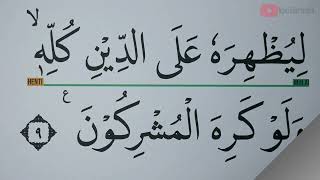 لِيُظْهِرَهٗ عَلَى الدِّيْنِ كُلِّهٖۙ
HENTI
MULA
وَلَوْ كَرِهَ الْمُشْرِكُوْنَ ࣖ ٩